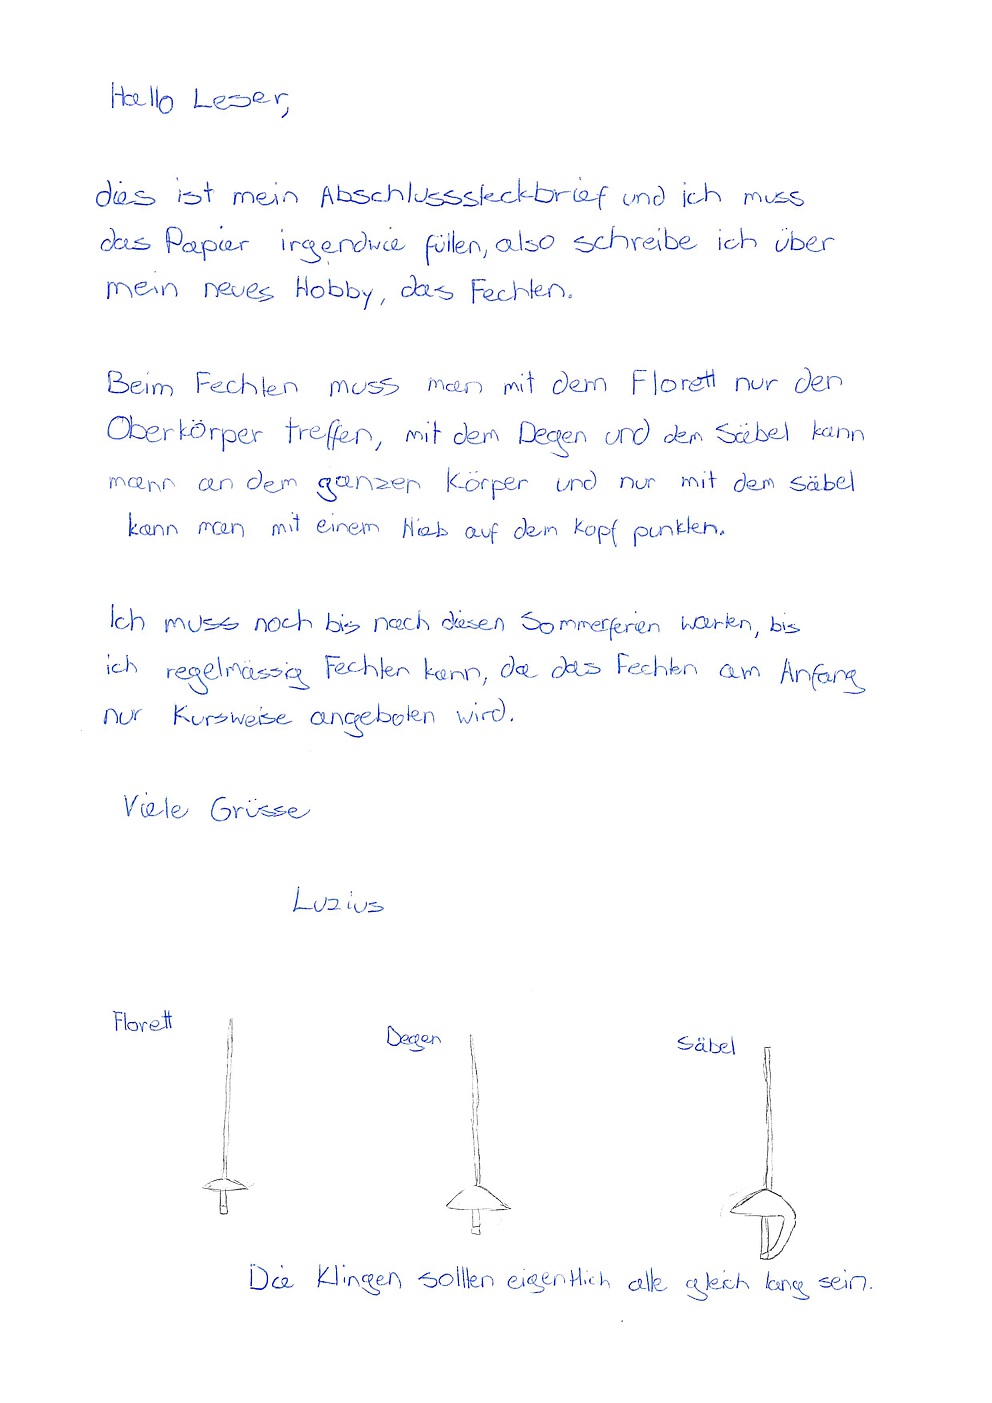 Hallo Leser,
dies ist mein Abschlusssteckbrief und ich muss
das Papier irgendwie füllen, also schreibe ich über
mein neues Hobby, das Fechten.
Beim Fechten muss man mit dem Florett nur den
Oberkörper treffen, mit dem Degen und dem Säbel kann
mann an dem ganzen Körper und nur mit dem Säbel
kann man mit einem Hieb auf dem Kopf punkten.
Ich muss noch bis nach diesen Sommerferien warten, bis
ich regelmässig Fechten kann, da das Fechten am Anfang
nur Kursweise angeboten wird.
Viele Grüsse
Luzius
Florett
Degen
Säbel
Die Klingen sollten eigentlich alle gleich lang sein.